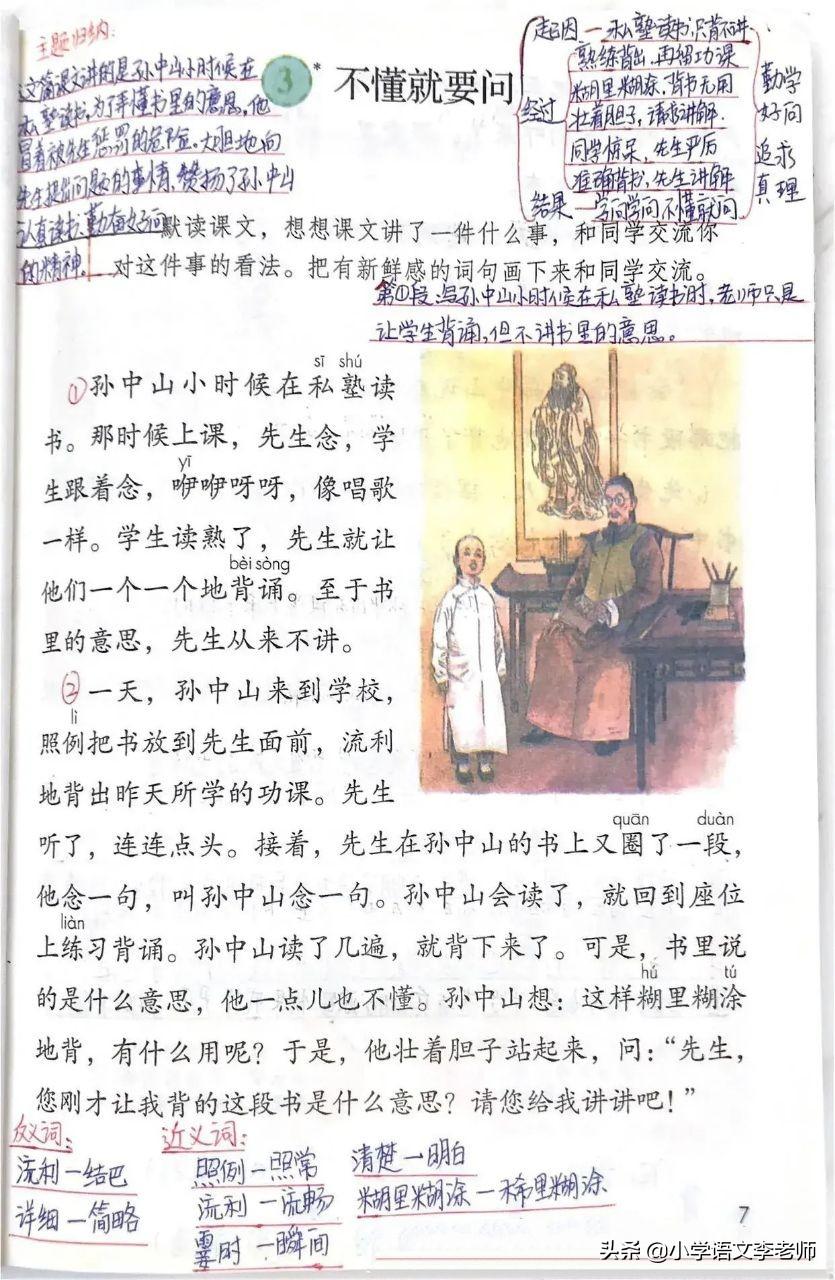 主题归纳:
这篇课文讲的是孙中山小时候在
私塾读书,为了弄懂书里的意思,他
冒着被先生惩罚的危险。大胆地向
先生提出问题的事情,赞扬了孙中山
认真读书、勤奋好问
的精神。
3* 不懂就要问
起因—私塾读书,只背不讲.
经过
熟练背出,再留功课
糊里糊涂,背书无用
壮着胆子,请求讲解.
同学惊呆,先生严厉
准确背书,先生讲解
结果—学问学问不懂就问
勤学
好问
追求
真理
默读课文,想想课文讲了一件什么事,和同学交流你
对这件事的看法。把有新鲜感的词句画下来和同学交流。
第①段:写孙中山小时候在私塾读书时,老师只是
让学生背诵,但不讲书里的意思。
sī shú
①孙中山小时候在私塾读
书。那时候上课,先生念,学
yī
生跟着念,咿咿呀呀,像唱歌
一样。学生读熟了,先生就让
bèi sòng
他们一个一个地背诵。至于书
里的意思,先生从来不讲。
②一天,孙中山来到学校,
lì
照例把书放到先生面前,流利
地背出昨天所学的功课。先生
quān duàn
听了,连连点头。接着,先生在孙中山的书上又圈了一段,
他念一句,叫孙中山念一句。孙中山会读了,就回到座位
liàn
上练习背诵。孙中山读了几遍,就背下来了。可是,书里说
hú tú
的是什么意思,他一点儿也不懂。孙中山想:这样糊里糊涂
地背,有什么用呢?于是,他壮着胆子站起来,问:“先生,
您刚才让我背的这段书是什么意思?请您给我讲讲吧!”
反义词:
流利—结巴
详细—简略
近义词:
照例—照常
流利—流畅
霎时—瞬间
清楚—明白
糊里糊涂—稀里糊涂
7
头条 @小学语文李老师